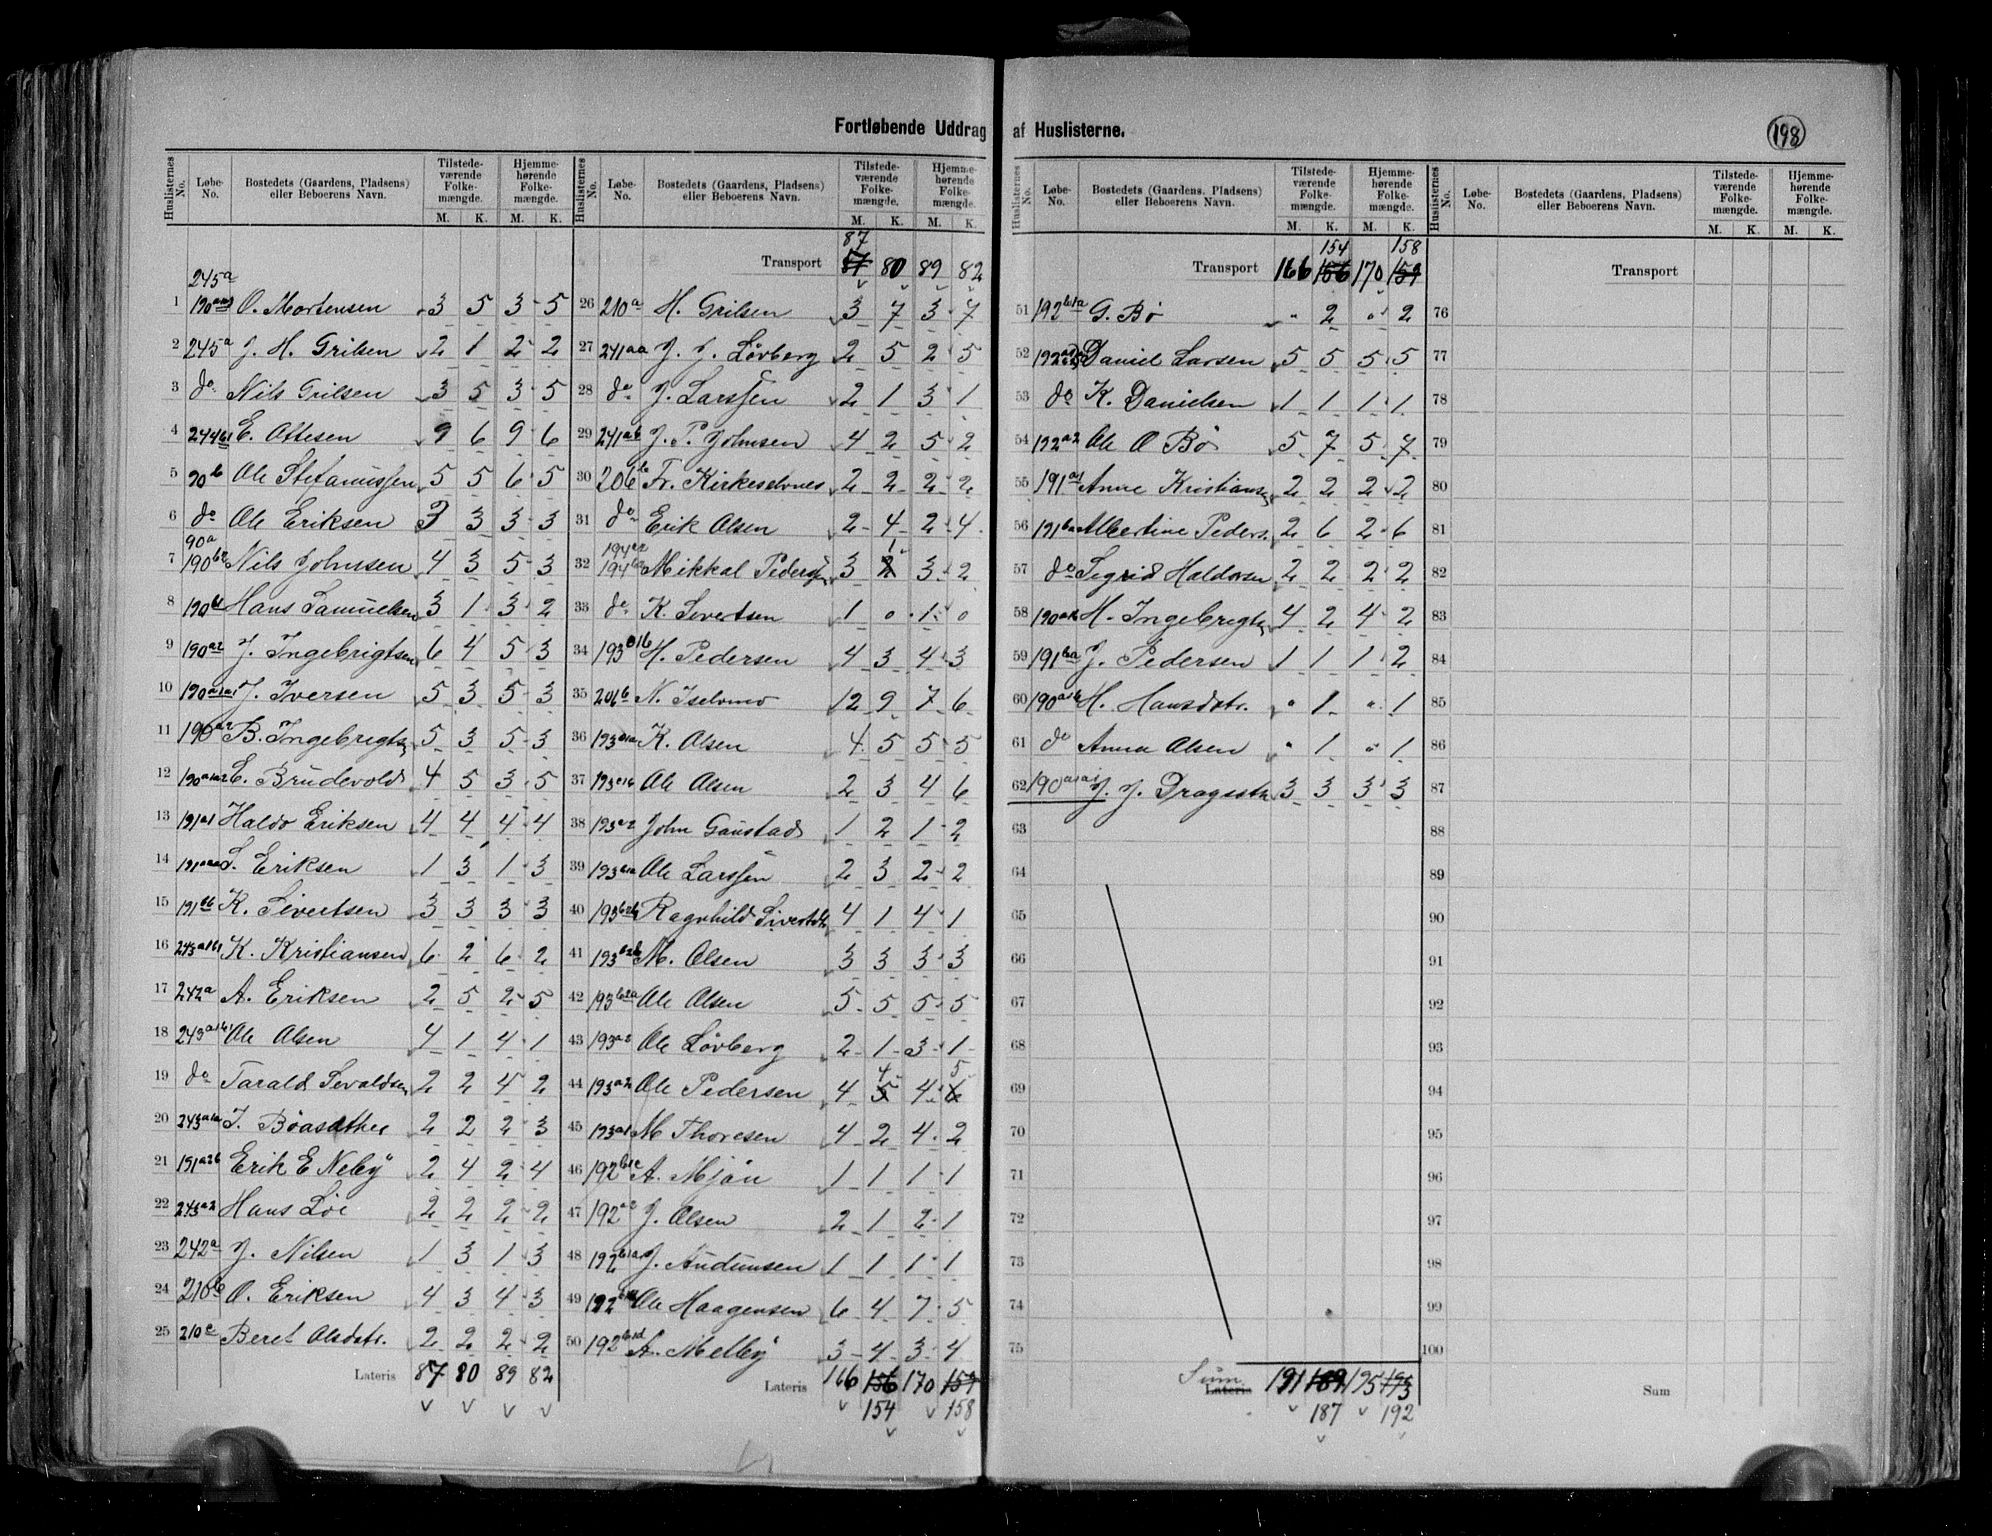 Fortløbende Uddrag af Huslisterne.
198
Huslisternes No. Løbe-No. Bostedets (Gaardens, Pladsens) eller Beboerens Navn. Tilstedeværende Folkemængde. M. K. Hjemmehørende Folkemængde. M. K.
245a
1 O. Mortensen 3 5 3 5
2 245a J. H. Grilsen 2 1 2 2
3 do Nils Grilsen 3 5 3 5
4 244b1 E. Ottesen 9 6 9 6
5 90b Ole Stefanussen 5 5 6 5
6 do Ole Eriksen 3 3 3 3
90a
7 190b2 Nils Johnsen 4 3 5 3
8 190b1 Hans Samuelsen 3 1 3 2
9 190a2 J. Ingebrigtsen 6 4 5 3
10 190a1a1 J. Iversen 5 3 5 3
11 190a2 B. Ingebrigts 5 3 5 3
12 190a1a2 E. Brudevold 4 5 3 5
13 191a1 Haldo Eriksen 4 4 4 4
14 S. Eriksen 1 3 1 3
15 191bb K. Sivertsen 3 3 3 3
16 243a1b1 K. Kristiansen 6 2 6 2
17 242a A. Eriksen 2 5 2 5
18 243a1b1 Ole Olsen 4 1 4 1
19 do Tarald Sevaldsen 2 2 4 2
20 243a1a J. Bøasæther 2 2 2 3
21 191a2b Erik E Neby 2 4 2 4
22 243a2 Hans Løe 2 2 2 2
23 242a J. Nilsen 1 3 1 3
24 210b O. Eriksen 4 3 4 3
25 210c Beret Olsdatr. 2 2 2 2
Lateris 87 80 89 82
Huslisternes No. Løbe-No. Bostedets (Gaardens, Pladsens) eller Beboerens Navn. Tilstedeværende Folkemængde. M. K. Hjemmehørende Folkemængde. M. K.
87
Transport 80 89 82
26 210a H. Grilsen 3 7 3 7
27 241aa J. J. Løvberg 2 5 2 5
28 do J. Larssen 2 1 3 1
29 241ab J. P. Johnsen 4 2 5 2
30 206b Fr. Kirkeselvnes 2 2 2 2
31 do Erik Olsen 2 4 2 4
194a2 1
32 194b2 Mikkal Pedersen 3 2 3 2
33 do K. Sivertsen 1 0 1 0
34 H. Pedersen 4 3 4 3
35 201b N. Iselvmo 12 9 7 6
36 193a1a K. Olsen 4 5 5 5
37 193a1b Ole Olsen 2 3 4 6
38 193a2 John Gaustad 1 2 1 2
39 193b1a Ole Larssen 2 3 2 2
40 193b2b Ragnhild Sivertsdtr 4 1 4 1
41 193b2b M. Olsen 3 3 3 3
42 193b2a Ole Olsen 5 5 5 5
43 193a2 Ole Løvberg 2 1 3 1
4 5
44 193a2 Ole Pedersen 4 5 4 6
45 193a1 M Thoresen 4 2 4 2
46 192b1c A. Mjøn 1 1 1 1
47 192a2 J. Olsen 2 1 2 1
48 192b1a J. Audunsen 1 1 1 1
49 Ole Haagensen 6 4 7 5
50 192b1d A. Melby 3 4 3 4
Lateris 166 156 170 159
154 158
Huslisternes No. Løbe-No. Bostedets (Gaardens, Pladsens) eller Beboerens Navn. Tilstedeværende Folkemængde. M. K. Hjemmehørende Folkemængde. M. K.
154 158
Transport 166 156 170 159
51 192b1a G. Bø " 2 " 2
52 Daniel Larsen 5 5 5 5
53 do K. Danielsen 1 1 1 1
54 192a2 Ole O Bø 5 7 5 7
55 191a1 Anne Kristians 2 2 2 2
56 191ba Albertine Peders. 2 6 2 6
57 do Sigrid Haldorsen 2 2 2 2
58 190a2 H. Ingebrigts 4 2 4 2
59 191ba J. Pedersen 1 1 1 2
60 190a1b H. Hansdatr. " 1 " 1
61 do Anna Olsen " 1 " 1
62 190a1a1 J. J. Dragsetr 3 3 3 3
63
64
65
66
67
68
69
70
71
72
73
74
75
Sum Lateris 191 189 195 193
187 192
Huslisternes No. Løbe-No. Bostedets (Gaardens, Pladsens) eller Beboerens Navn. Tilstedeværende Folkemængde. M. K. Hjemmehørende Folkemængde. M. K.
Transport
76
77
78
79
80
81
82
83
84
85
86
87
88
89
90
91
92
93
94
95
96
97
98
99
100
Sum